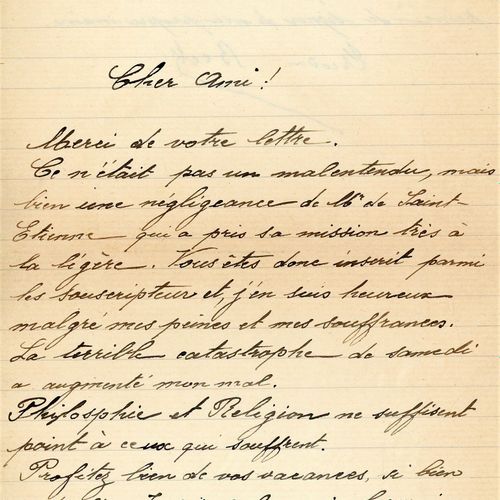 Cher Ami!
Merci de votre lettre.
Ce n'était pas un malentendu, mais
bien une négligeance de Mr de Saint-
Etienne qui a pris sa mission très à
la légère. Vous êtes donc inscrit parmi
les souscripteur et j'en suis heureux
malgré mes peines et mes souffrances.
La terrible catastrophe de samedi
a augmenté mon mal.
Philosphie et Religion ne suffisent
point à ceux qui souffrent.
Profitez bien de vos vacances, si bien